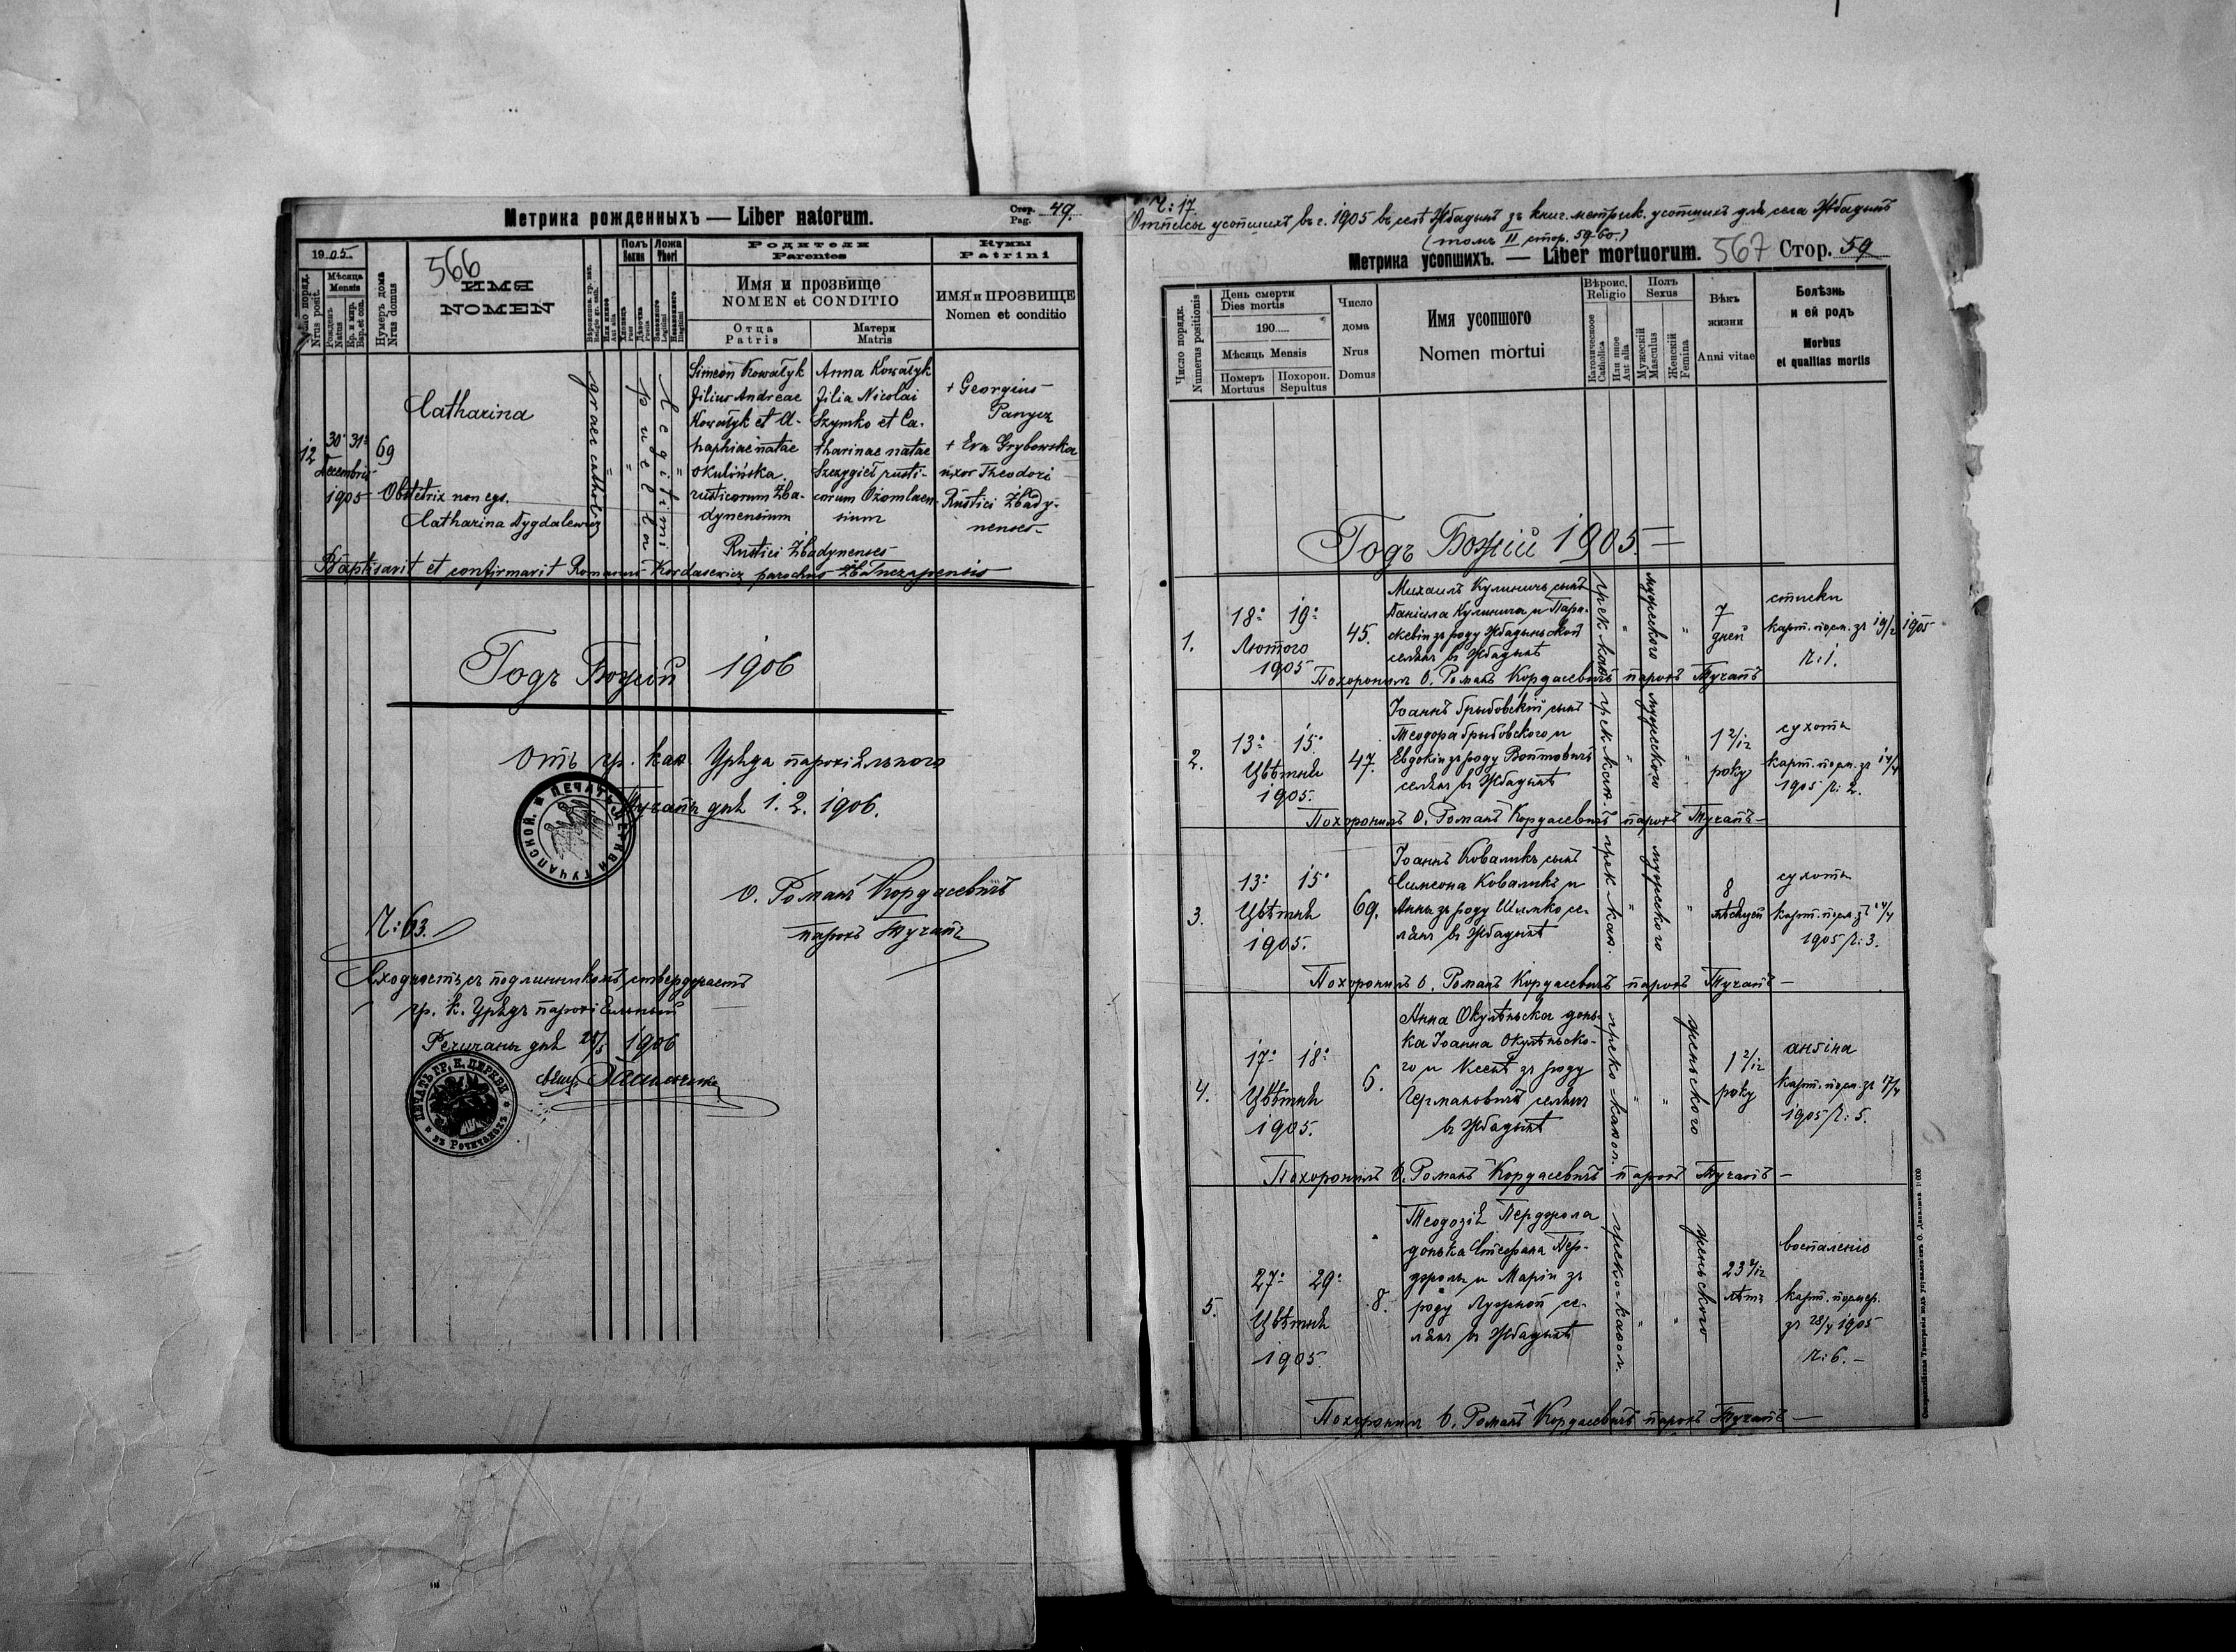 Метрика рожденныхъ — Liber natorum.
Стор. Pag. 49.
1905.
566
Число поряд. Nrus posit.
Мѣсяца Mensis
Рожденъ Natus
Кр. и мѵр. Bap. et con.
Нумеръ дома Nrus domus
ИМЯ
NOMEN
Полъ Sexus
Ложа Thori
Родители
Parentes
Имя и прозвище
NOMEN et CONDITIO
Отца
Patris
Матери
Matris
Кумы
Patrini
ИМЯ и ПРОЗВИЩЕ
Nomen et conditio
12
30· 31·
Decembris
1905
69
Catharina
Obstetrix non egs.
Catharina Dygdalewicz
graec cathol.
puella
legitimi
Simeon Kowalyk
filius Andreae
Kowalyk et A-
haphiae natae
Okulińska.
rusticorum Żba-
dynensium
Anna Kowalyk
filia Nicolai
Szymko et Ca-
tharinae natae
Szczygieł rusti-
corum Ożomlaen-
sium
Rustici Żbadynenses
+ Georgius
Panycz
+ Eva Grybowska
uxor Theodori
Rustici Żbady-
nenses-
Baptisavit et confirmavit Romanus Kordasewicz parochus Tuczapensis
Годъ Божій 1906
Отъ гр. каѳ Уряда парохіяльного
Тучапы днѣ 1. 2. 1906.
ПЕЧАТЬ ЦЕРКВИ ТУЧАПСКОЙ.
О. Романъ Кордасевичъ
парохъ Тучапъ
Ч: 63.
Сходность съ подлинникомъ стверджаетъ
гр. к. Урядъ парохіяльный
Речичаны днѣ 28/5 1906
ПЕЧАТЬ ГР. К. ЦЕРКВИ
въ Речичанахъ
Ч: 17
Отписъ усопшихъ въ г. 1905 въ селѣ Жбадынѣ зъ книг. метрик. усопшихъ для села Жбадынѣ
(томъ II стор. 59-60.)
Метрика усопшихъ. — Liber mortuorum. 567 Стор. 59
Число порядк.
Numerus positionis
День смерти
Dies mortis
190.....
Мѣсяць Mensis
Померъ
Mortuus
Похорон.
Sepultus
Число
дома
Nrus
Domus
Имя усопшого
Nomen mortui
Вѣроис.
Religio
Католическое
Catholica
Или иное
Aut alia
Полъ
Sexus
Мужескій
Masculus
Женскій
Femina
Вѣкъ
жизни
Anni vitae
Болѣзнь
и ей родъ
Morbus
et qualitas mortis
Годъ Божій 1905 —
1.
18· 19·
Лютого
1905
45.
Михаилъ Кулиничъ сынъ
Даніила Кулинича и Пара-
скевіи зъ роду Жбадыньской
селянъ въ Жбадынѣ
грек. каѳ.
мужеского
7
дней
стиски
карт. посм. зъ 19/2 1905
Ч: 1.
Похоронилъ О. Романъ Кордасевичъ парохъ Тучапъ
2.
13· 15·
Цвѣтня
1905.
47.
Іоаннъ Грыбовскій сынъ
Теодора Грыбовского и
Евдокіи зъ роду Войтовичъ
селянъ въ Жбадынѣ
грек. каѳ.
мужеского
1 2/12
року
сухоты
карт. посм. зъ 14/4
1905 Ч: 2.
Похоронилъ О. Романъ Кордасевичъ парохъ Тучапъ —
3.
13· 15·
Цвѣтня
1905.
69.
Іоаннъ Ковалыкъ сынъ
Симеона Ковалыкъ и
Анны зъ роду Шымко се-
лянъ въ Жбадынѣ
грек. каѳ.
мужеского
8
мѣсяцей
сухоты
карт. посм. зъ 14/4
1905 Ч: 3.
Похоронилъ О. Романъ Кордасевичъ парохъ Тучапъ —
4.
17· 18·
Цвѣтня
1905.
6.
Анна Окулѣньска донь-
ка Іоанна Окулѣньско-
го и Ксенѣ зъ роду
Германовичъ селянъ
въ Жбадынѣ
греко-каѳол.
женьского
1 2/12
року
ангіна
карт. посм. зъ 17/4
1905 Ч: 5.
Похоронилъ О. Романъ Кордасевичъ парохъ Тучапъ —
5.
27· 29·
Цвѣтня
1905.
8.
Теодозія Перджола
донька Стефана Пер-
джолы и Маріи зъ
роду Лужной се-
лянъ въ Жбадынѣ
греко-каѳол.
женьского
23 2/12
лѣтъ
воспаленіе
карт. посмер.
зъ 28/4 1905
Ч: 6. —
Похоронилъ О. Романъ Кордасевичъ парохъ Тучапъ —